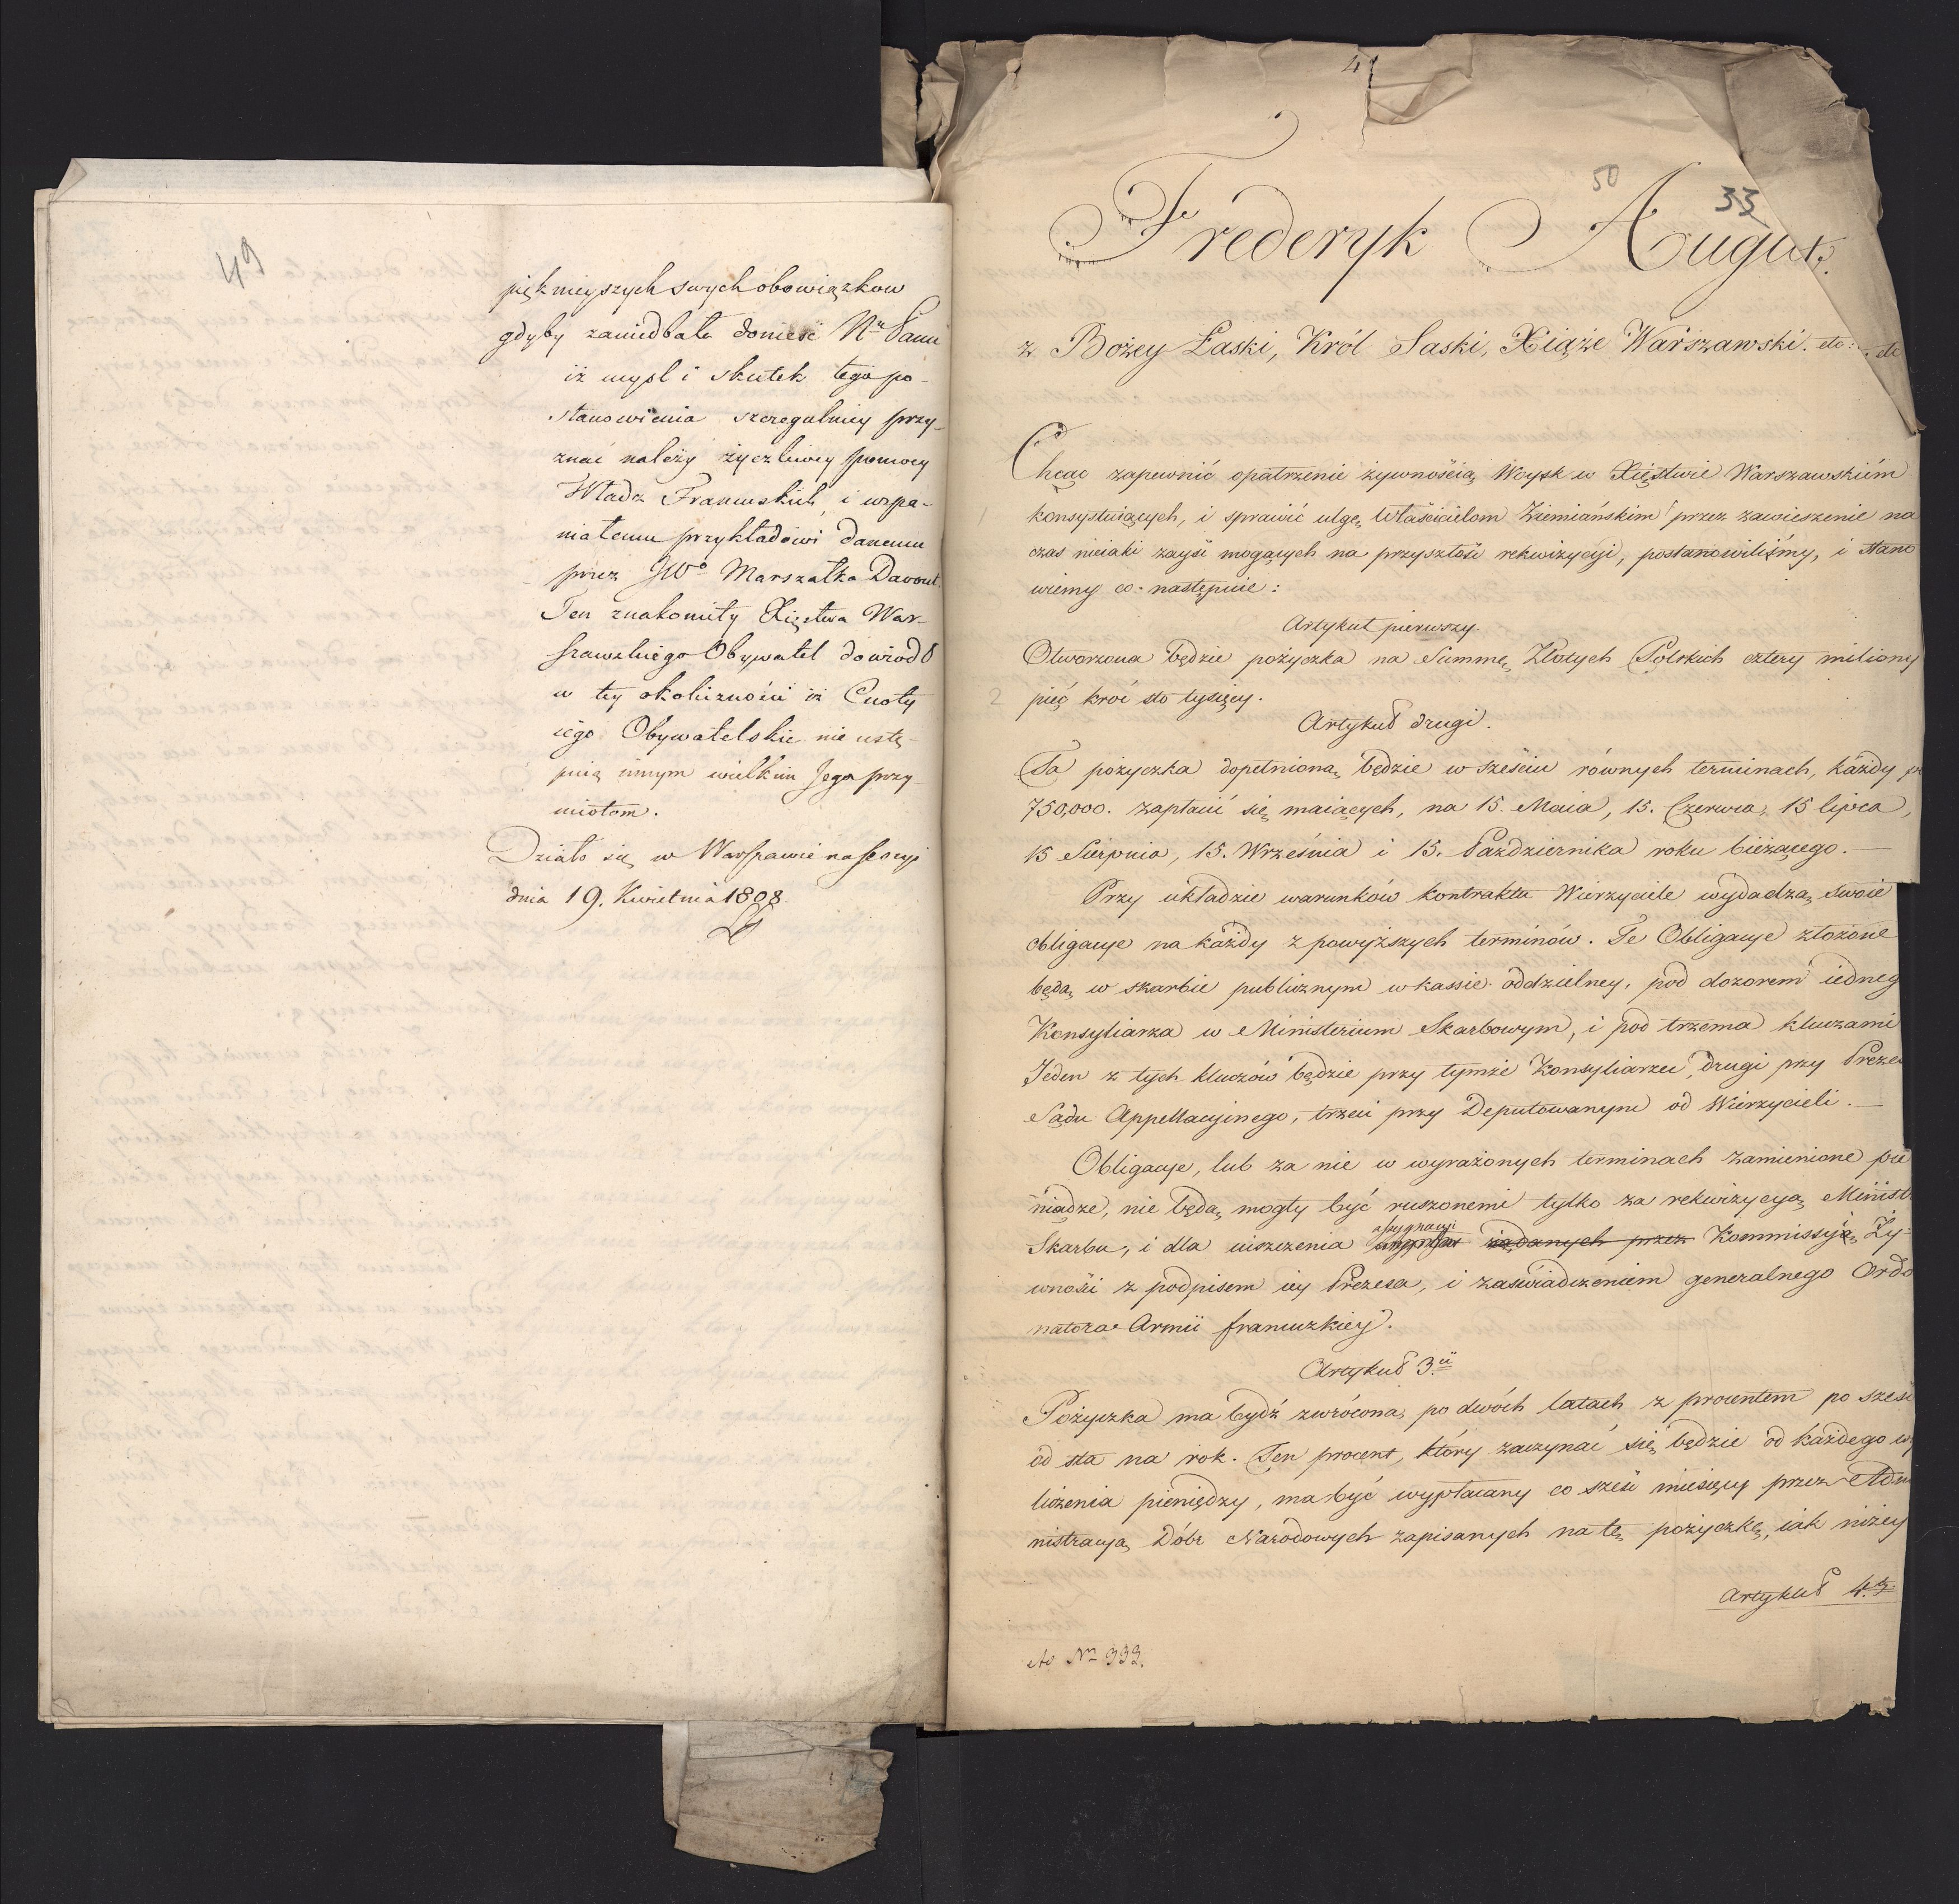 49
pięknieyszych swych obowiązkow
gdyby zaniedbała donieść N. Panu
iż mysl i skutek tego po-
stanowienia szczegulniey przy-
znać należy życzliwey pomocy
Władz Francuskich, i wspa-
niałemu przykładowi danemu
przez JWo Marszałka Davout.
Ten znakomity Xięstwa War-
szawskiego Obywatel dowiódł
w tey okoliczności iż Cnoty
iego Obywatelskie nie ustę-
puią innym wielkim Jego przy-
miotom.
Działo się w Warszawie na sessyi
dnia 19. Kwietnia 1808.
41
50
33
Frederyk August.
z Bożey Łaski, Król Saski, Xiąże Warszawski. etc: etc
Chcąc zapewnić opatrzenie żywnością Woysk w Xięstwie Warszawskiém
1
konsystuiących, i sprawić ulgę Właścicielom Ziemiańskim przez zawieszenie na
czas nieiaki zayść mogących na przyszłość rekwizycyi, postanowiliśmy, i stano
wiemy co następuie:
Artykuł pierwszy.
Otworzona będzie pożyczka na Summę Złotych Polskich cztery miliony
2
pięć kroć sto tysięcy.
Artykuł drugi.
Ta pożyczka dopełnioną będzie w sześciu równych terminach, każdy po
750,000. zapłacić się maiących, na 15. Maia, 15. Czerwca, 15 lipca,
15 Sierpnia, 15. Września i 15. Października roku bieżącego. —
Przy układzie warunków kontraktu Wierzyciele wydadzą swoie
obligacye na każdy z powyższych terminów. Te Obligacye złożone
będą w skarbie publicznym w kassie oddzielney, pod dozorem iedneg
Konsyliarza w Ministerium Skarbowym, i pod trzema kluczami
Jeden z tych kluczów będzie przy tymże Konsyliarzu, drugi przy Preze
Sądu Appellacyinego, trzeci przy Deputowanym od Wierzycieli. —
Obligacye, lub za nie w wyrażonych terminach zamienione pie
niądze, nie będą mogły być ruszonemi tylko za rekwizycyą Minist
assygnacyi
Skarbu, i dla uiszczenia żądanych przez Kommissyią Ży-
wności z podpisem iey Prezesa, i zaświadczeniem generalnego Ordo
natora Armii francuzkiey.
Artykuł 3.ci
Pożyczka ma bydź zwróconą po dwóch latach z procentem po sześć
od sta na rok. Ten procent, który zaczynać się będzie od każdego wy
liczenia pieniędzy, ma być wypłacany co sześć miesięcy przez Adm
nistracyą Dóbr Narodowych zapisanych na tę pożyczkę, iak niżey
Artykuł 4.ty
Ao No 333.